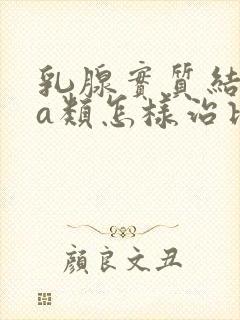 乳腺實質結
a類怎樣治
顏良文丑